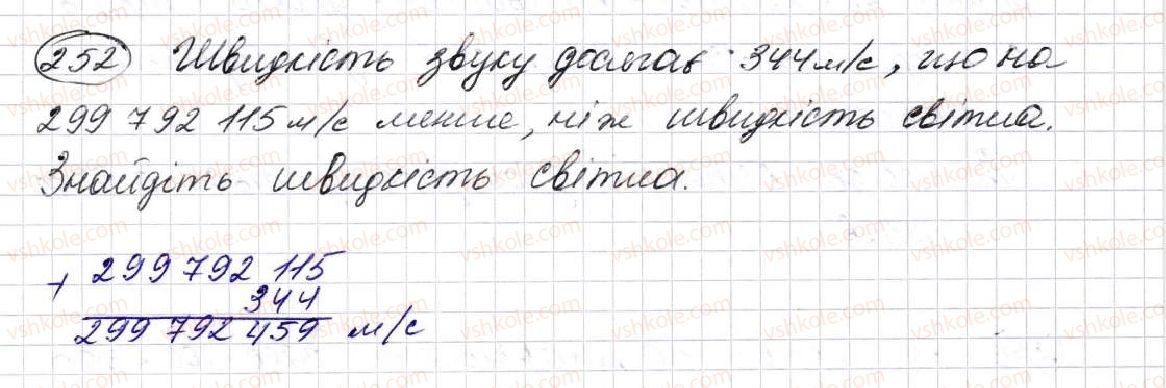 252 Швидкість звуку досягає 344 м/с, що на
299 792 115 м/с менше, ніж швидкість світла.
Знайдіть швидкість світла.
+ 299 792 115
344
299 792 459 м/с